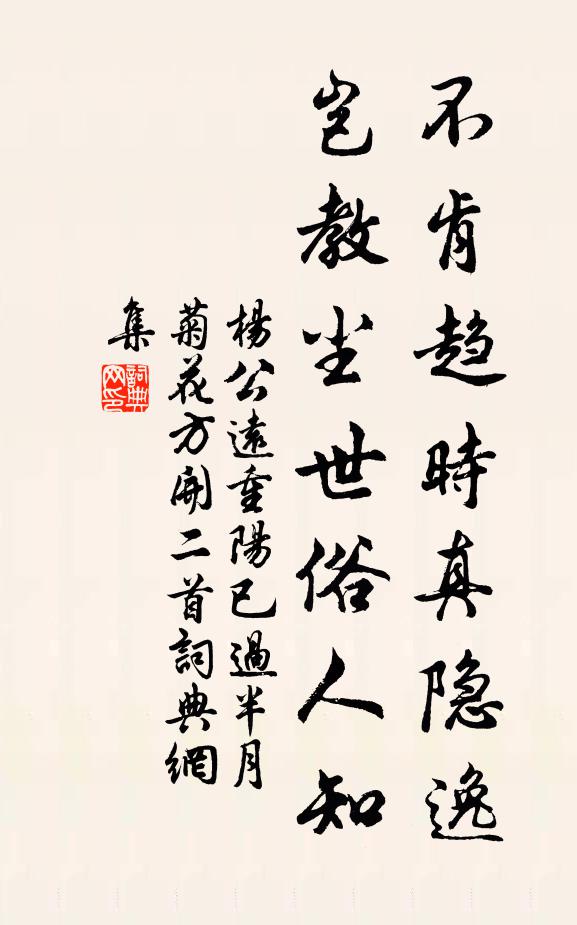 不肯趋時真隐逸
岂教尘世俗人知
楊公遠重陽已過半月
菊花方開二首詞典網
集
詞典
网印